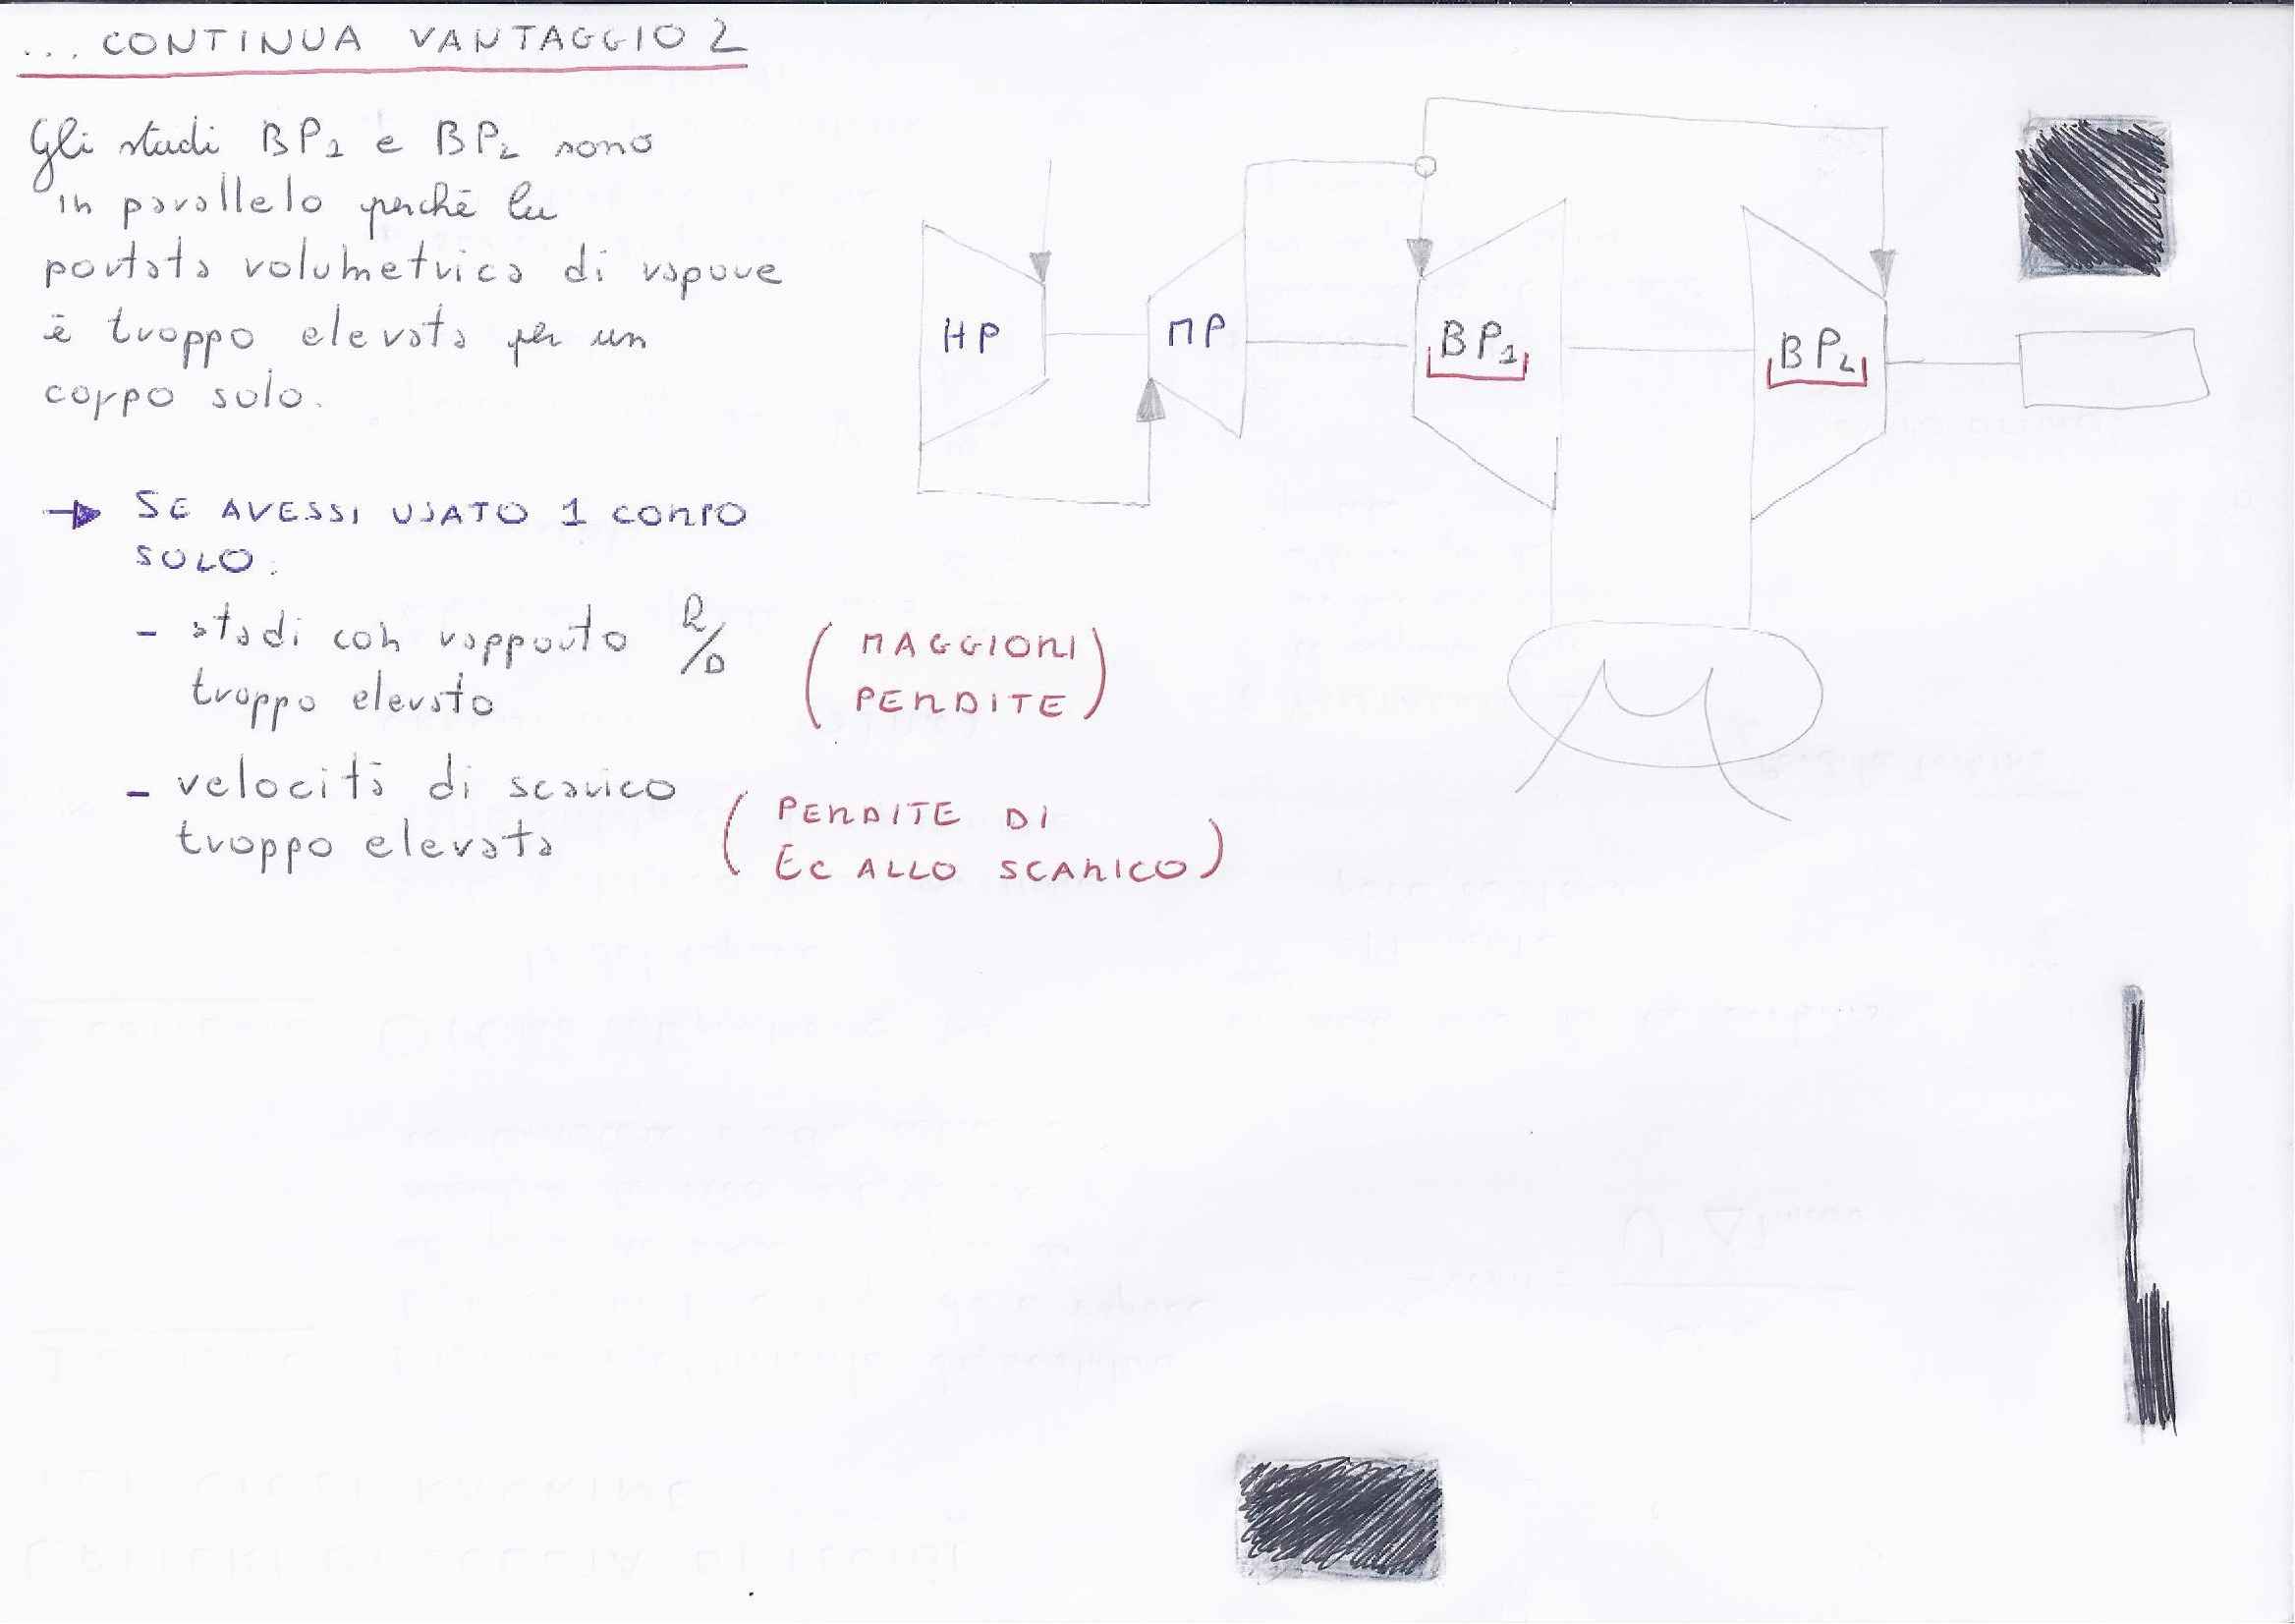 ... CONTINUA VANTAGGIO 2
Gli stadi BP1 e BP2 sono
in parallelo perchè la
portata volumetrica di vapore
è troppo elevata per un
corpo solo.
→ SE AVESSI USATO 1 CORPO
SOLO:
- stadi con rapporto l/D
troppo elevato
(MAGGIORI
PERDITE)
- velocità di scarico
troppo elevata
(PERDITE DI
EC ALLO SCARICO)
HP
MP
BP1
BP2